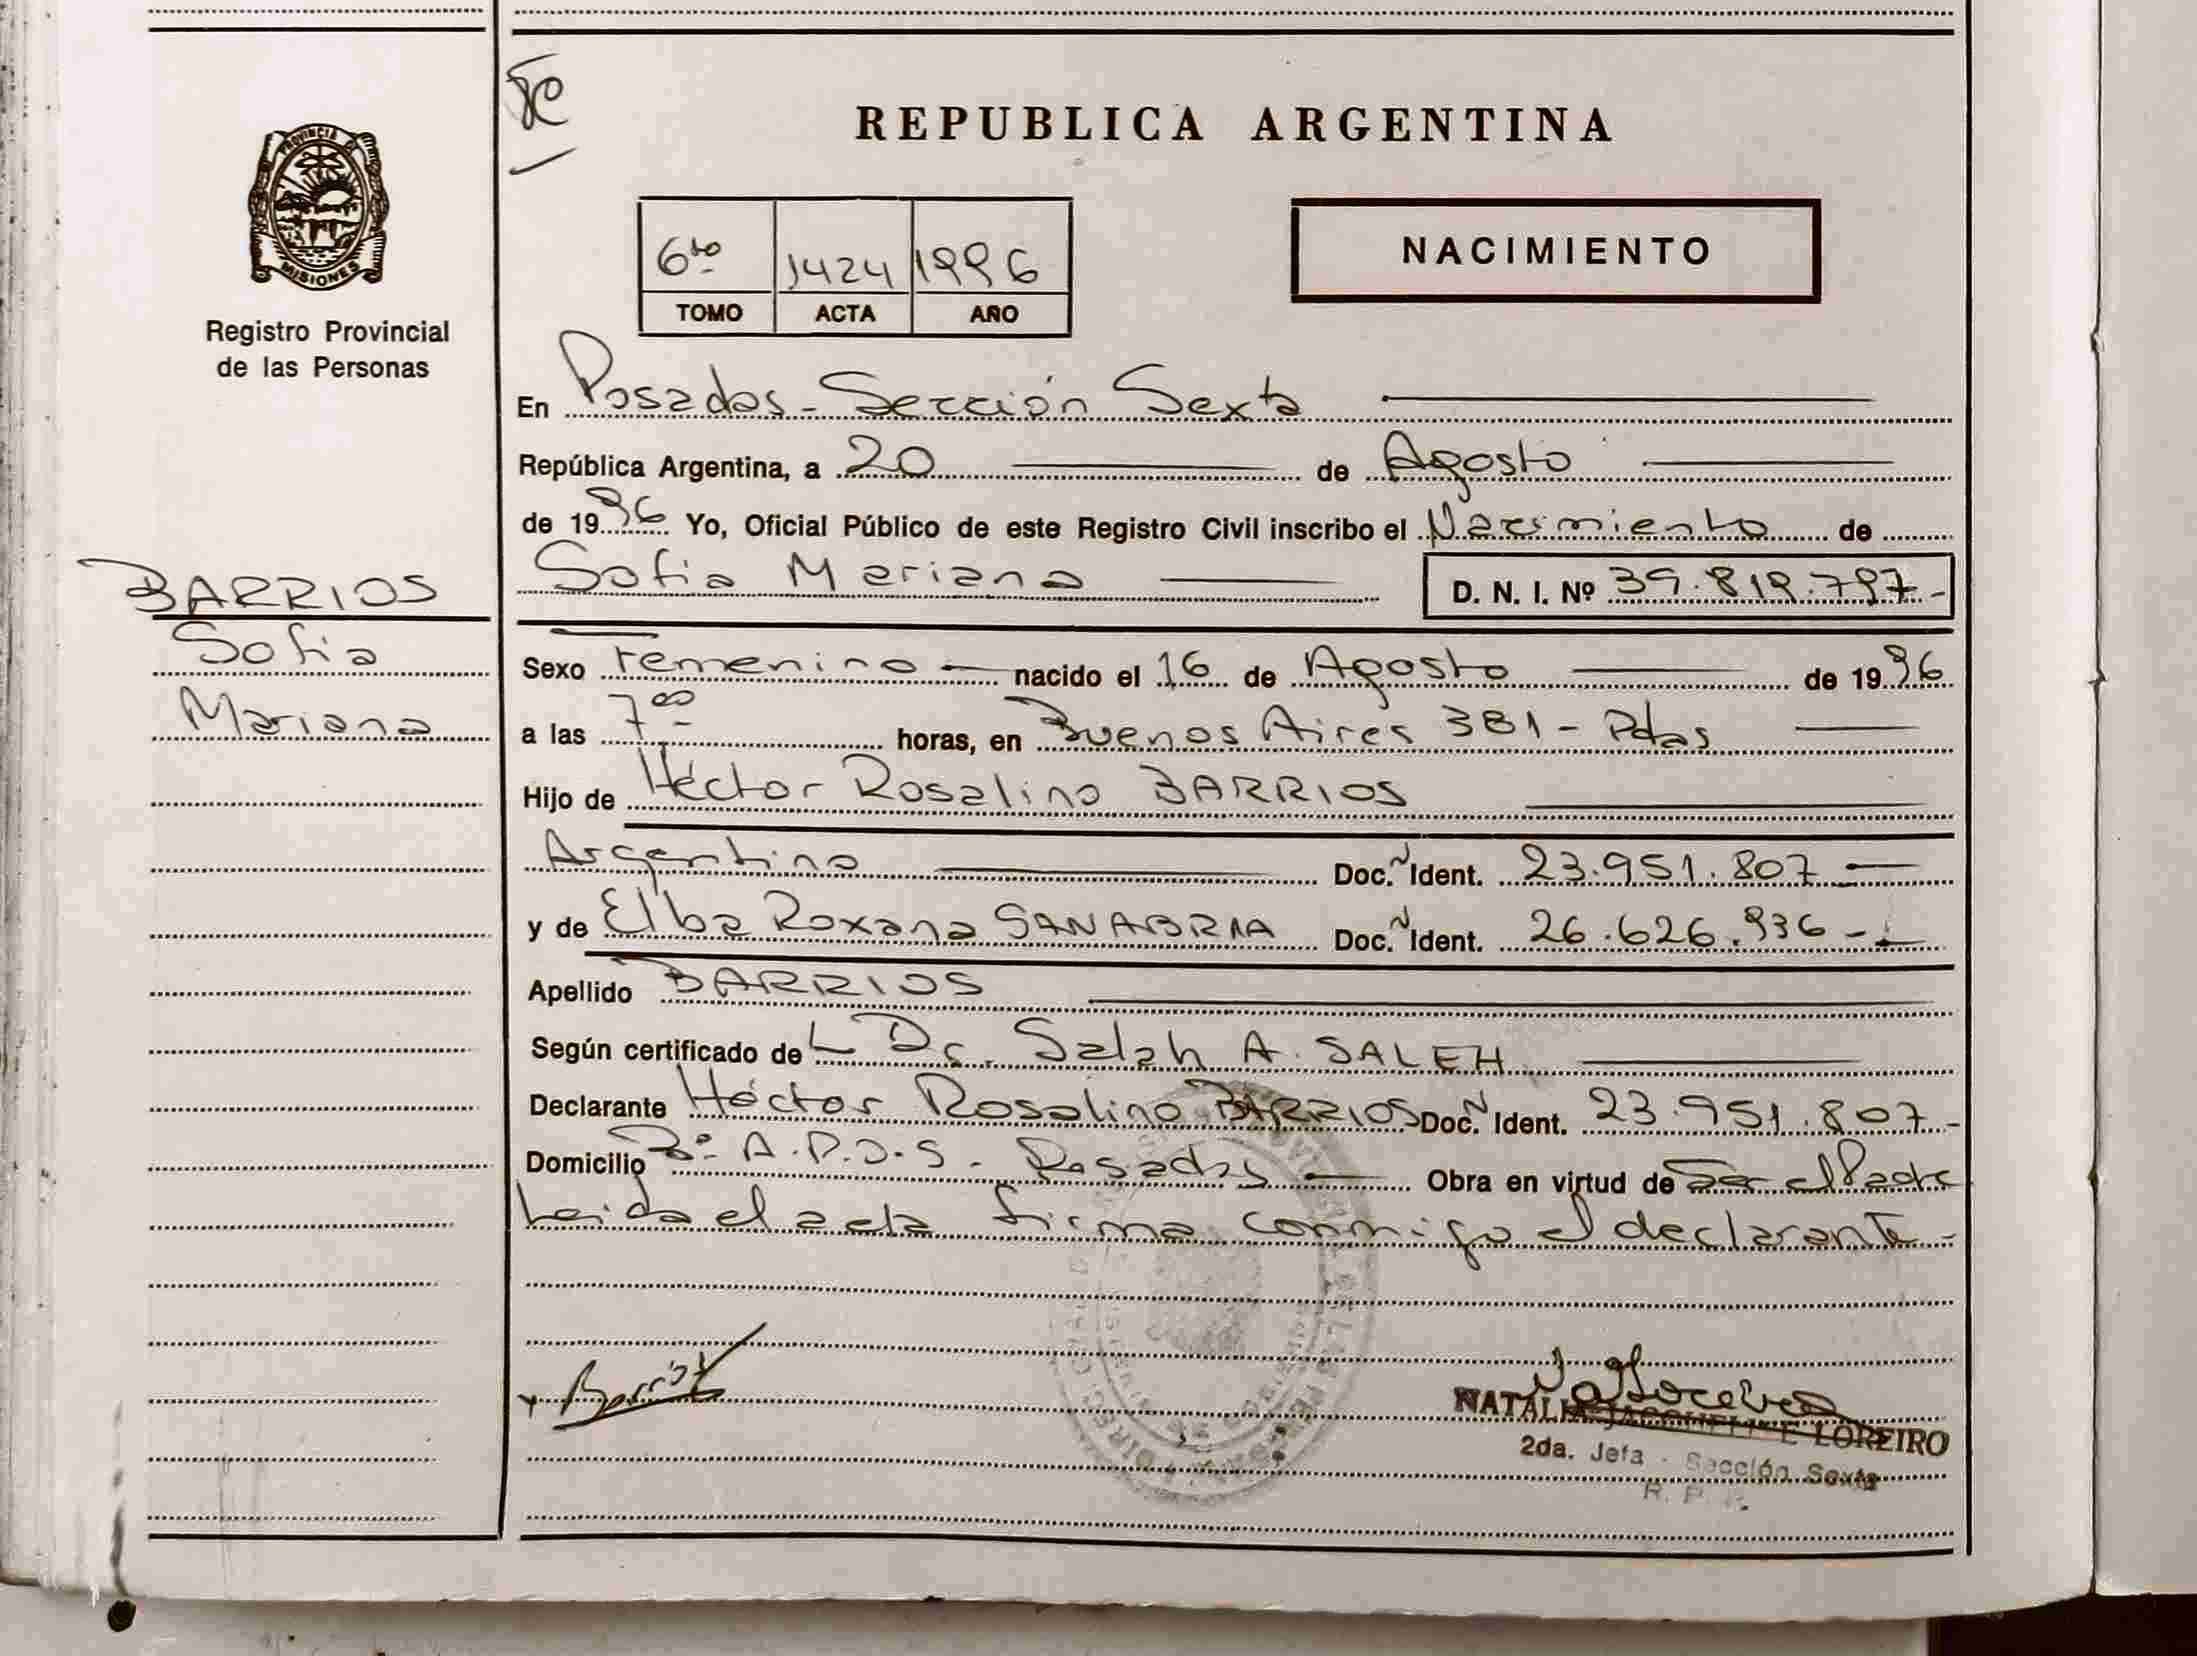 PROVINCIA DE
MISIONES
Registro Provincial
de las Personas
BARRIOS
Sofia
Mariana
REPUBLICA ARGENTINA
6to 1424 1996
TOMO ACTA AÑO
NACIMIENTO
En Posadas - Sección Sexta
República Argentina, a 20 de Agosto
de 1996 Yo, Oficial Público de este Registro Civil inscribo el Nacimiento de
Sofia Mariana D. N. I. Nº 39.819.797.-
Sexo Femenino nacido el 16 de Agosto de 1996
a las 7 00 horas, en Buenos Aires 381 - Pdas
Hijo de Héctor Rosalino BARRIOS
Argentino Doc. Ident. 23.951.807
y de Elba Roxana SANABRIA Doc. Ident. 26.626.936 -
Apellido BARRIOS
Según certificado de L Dr. Salah A. SALEH
Declarante Héctor Rosalino BARRIOS Doc. Ident. 23.951.807-
Domicilio Bº A.P.O.S. Posadas Obra en virtud de Ser el Padre
Leida el acta firma conmigo el declarante -
x Barrios
NATALIA JACQUELINE LOREIRO
2da. Jefa - Sección Sexta
R. P.